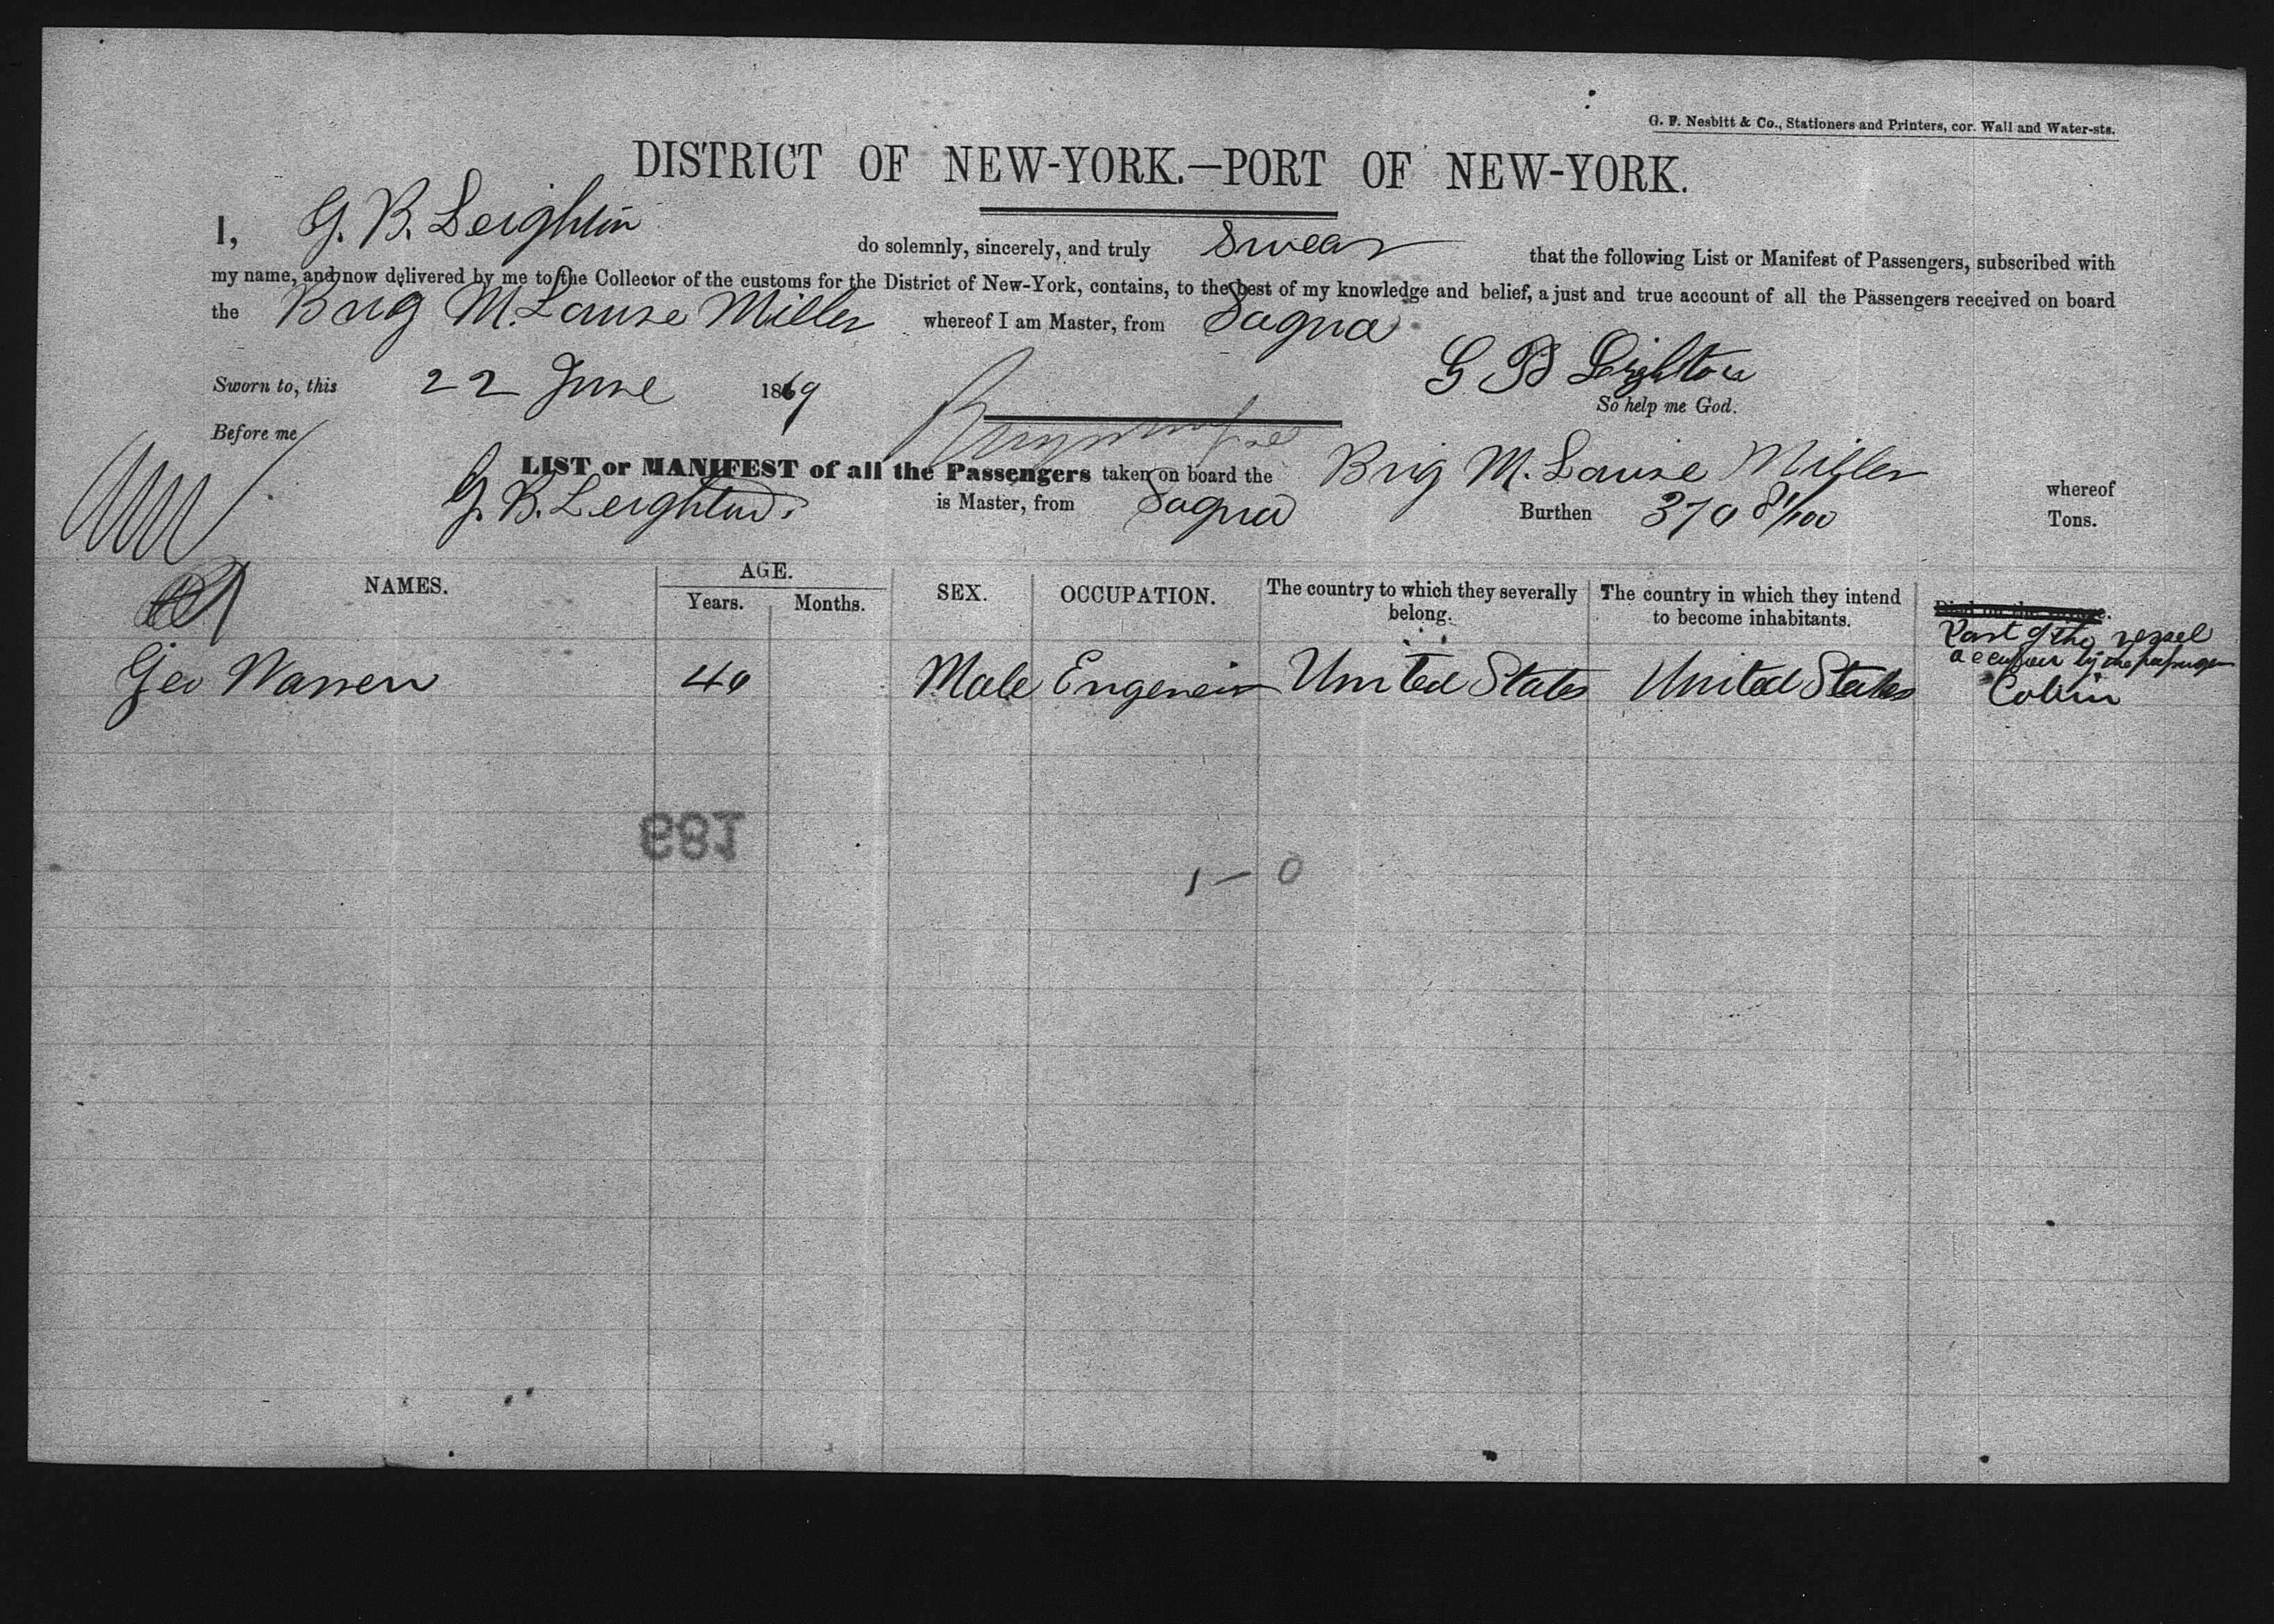 G. F. Nesbitt & Co., Stationers and Printers, cor. Wall and Water-sts.
DISTRICT OF NEW-YORK.—PORT OF NEW-YORK.
I, G. B. Leighton do solemnly, sincerely, and truly swear that the following List or Manifest of Passengers, subscribed with
my name, and now delivered by me to the Collector of the customs for the District of New-York, contains, to the best of my knowledge and belief, a just and true account of all the Passengers received on board
the Brig M. Louise Miller whereof I am Master, from Sagua
G B Leighton
Sworn to, this 22 June 1869
So help me God.
Before me
LIST or MANIFEST of all the Passengers taken on board the Brig M. Louise Miller whereof
G. B. Leighton is Master, from Sagua Burthen 370 81/100 Tons.
NAMES. AGE. SEX. OCCUPATION. The country to which they severally belong. The country in which they intend to become inhabitants. Died on the voyage.
Years. Months.
Part of the vessel
occupied by the passenger
Geo Warren 40 Male Engeneir United States United States Cabin
681
1 — 0